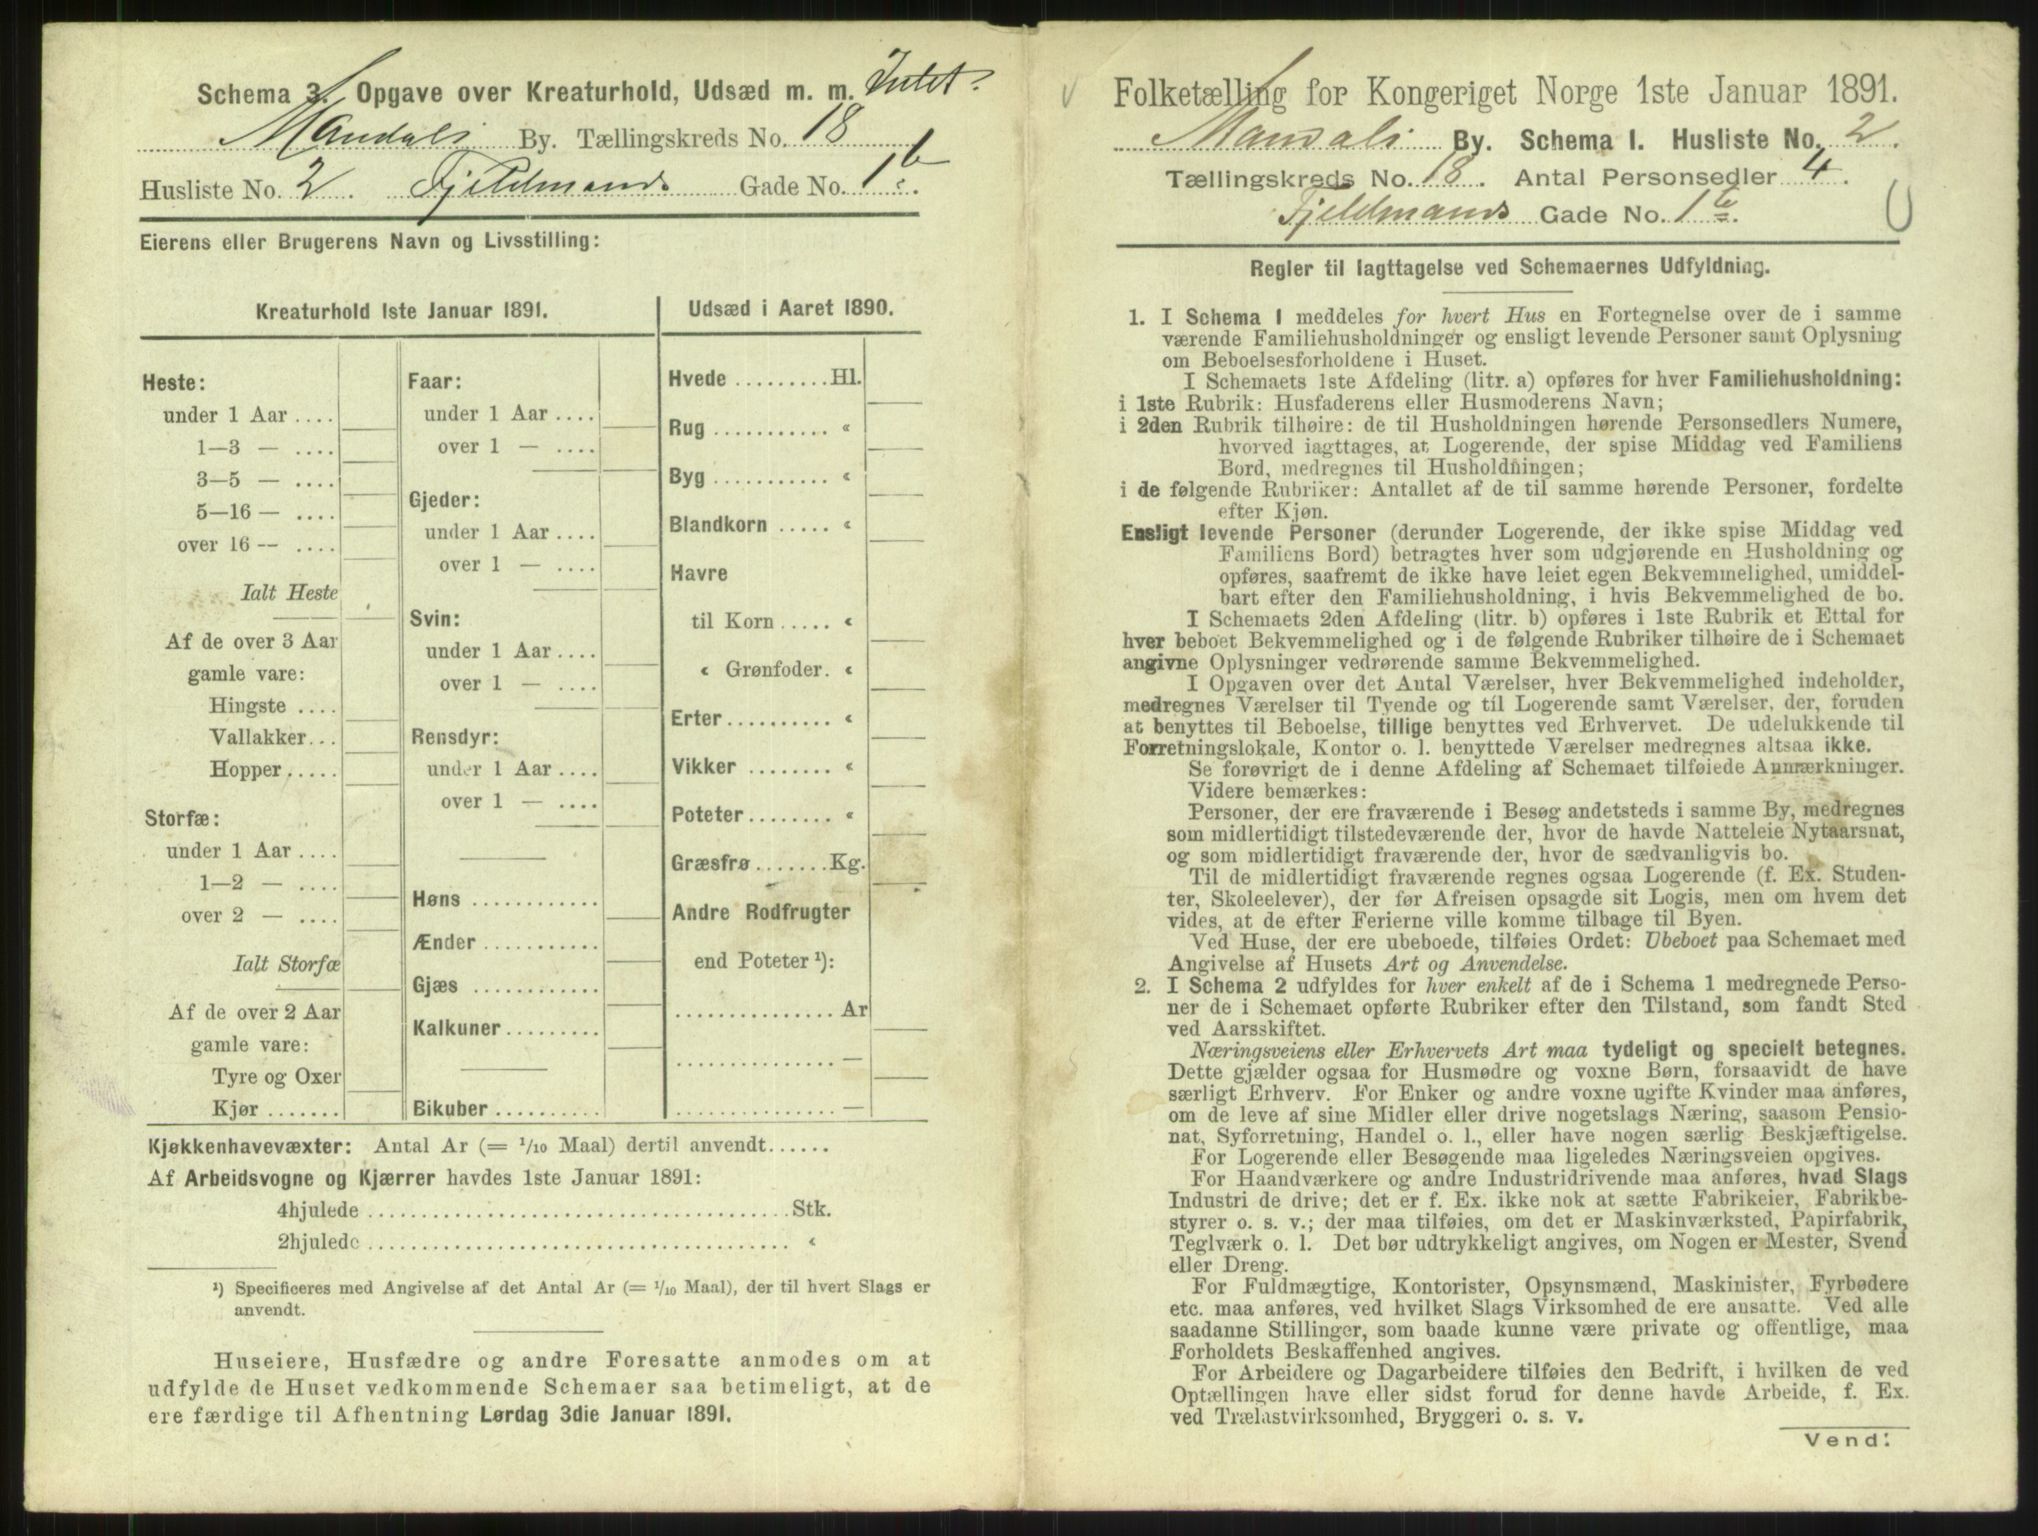 Schema 3. Opgave over Kreaturhold, Udsæd m. m. Intet.
Mandals By. Tællingskreds No. 18
Husliste No. 2. Fjeldmands Gade No. 1b.
Eierens eller Brugerens Navn og Livsstilling:
Kreaturhold 1ste Januar 1891.
Heste:
under 1 Aar ....
1—3 — ....
3—5 — ....
5—16 — ....
over 16 — ....
Ialt Heste
Af de over 3 Aar
gamle vare:
Hingste ....
Vallakker...
Hopper.....
Storfæ:
under 1 Aar ....
1—2 — ....
over 2 — ....
Ialt Storfæ
Af de over 2 Aar
gamle vare:
Tyre og Oxer
Kjør .......
Faar:
under 1 Aar ....
over 1 — ....
Gjeder:
under 1 Aar ....
over 1 — ....
Svin:
under 1 Aar ....
over 1 — ....
Rensdyr:
under 1 Aar ....
over 1 — ....
Høns ............
Ænder ...........
Gjæs ............
Kalkuner.........
Bikuber ..........
Udsæd i Aaret 1890.
Hvede .........Hl.
Rug ........... «
Byg ........... «
Blandkorn ..... «
Havre
til Korn ..... «
« Grønfoder. «
Erter.......... «
Vikker ........ «
Poteter........ «
Græsfrø .......Kg.
Andre Rodfrugter
end Poteter ¹):
............... Ar
............... —
............... —
Kjøkkenhavevæxter: Antal Ar (= 1/10 Maal) dertil anvendt......
Af Arbeidsvogne og Kjærrer havdes 1ste Januar 1891:
4hjulede ........................................Stk.
2hjulede ........................................ «
¹) Specificeres med Angivelse af det Antal Ar (= 1/10 Maal), der til hvert Slags er
anvendt.
Huseiere, Husfædre og andre Foresatte anmodes om at
udfylde de Huset vedkommende Schemaer saa betimeligt, at de
ere færdige til Afhentning Lørdag 3die Januar 1891.
Folketælling for Kongeriget Norge 1ste Januar 1891.
Mandals By. Schema I. Husliste No. 2.
Tællingskreds No. 18. Antal Personsedler 4.
Fjeldmands Gade No. 1b.
Regler til Iagttagelse ved Schemaernes Udfyldning.
1. I Schema 1 meddeles for hvert Hus en Fortegnelse over de i samme
værende Familiehusholdninger og ensligt levende Personer samt Oplysning
om Beboelsesforholdene i Huset.
I Schemaets 1ste Afdeling (litr. a) opføres for hver Familiehusholdning:
i 1ste Rubrik: Husfaderens eller Husmoderens Navn;
i 2den Rubrik tilhøire: de til Husholdningen hørende Personsedlers Numere,
hvorved iagttages, at Logerende, der spise Middag ved Familiens
Bord, medregnes til Husholdningen;
i de følgende Rubriker: Antallet af de til samme hørende Personer, fordelte
efter Kjøn.
Ensligt levende Personer (derunder Logerende, der ikke spise Middag ved
Familiens Bord) betragtes hver som udgjørende en Husholdning og
opføres, saafremt de ikke have leiet egen Bekvemmelighed, umiddel-
bart efter den Familiehusholdning, i hvis Bekvemmelighed de bo.
I Schemaets 2den Afdeling (litr. b) opføres i 1ste Rubrik et Ettal for
hver beboet Bekvemmelighed og i de følgende Rubriker tilhøire de i Schemaet
angivne Oplysninger vedrørende samme Bekvemmelighed.
I Opgaven over det Antal Værelser, hver Bekvemmelighed indeholder,
medregnes Værelser til Tyende og til Logerende samt Værelser, der, foruden
at benyttes til Beboelse, tillige benyttes ved Erhvervet. De udelukkende til
Forretningslokale, Kontor o. l. benyttede Værelser medregnes altsaa ikke.
Se forøvrigt de i denne Afdeling af Schemaet tilføiede Anmærkninger.
Videre bemærkes:
Personer, der ere fraværende i Besøg andetsteds i samme By, medregnes
som midlertidigt tilstedeværende der, hvor de havde Natteleie Nytaarsnat,
og som midlertidigt fraværende der, hvor de sædvanligvis bo.
Til de midlertidigt fraværende regnes ogsaa Logerende (f. Ex. Studen-
ter, Skoleelever), der før Afreisen opsagde sit Logis, men om hvem det
vides, at de efter Ferierne ville komme tilbage til Byen.
Ved Huse, der ere ubeboede, tilføies Ordet: Ubeboet paa Schemaet med
Angivelse af Husets Art og Anvendelse.
2. I Schema 2 udfyldes for hver enkelt af de i Schema 1 medregnede Perso-
ner de i Schemaet opførte Rubriker efter den Tilstand, som fandt Sted
ved Aarsskiftet.
Næringsveiens eller Erhvervets Art maa tydeligt og specielt betegnes.
Dette gjælder ogsaa for Husmødre og voxne Børn, forsaavidt de have
særligt Erhverv. For Enker og andre voxne ugifte Kvinder maa anføres,
om de leve af sine Midler eller drive nogetslags Næring, saasom Pensio-
nat, Syforretning, Handel o. l., eller have nogen særlig Beskjæftigelse.
For Logerende eller Besøgende maa ligeledes Næringsveien opgives.
For Haandværkere og andre Industridrivende maa anføres, hvad Slags
Industri de drive; det er f. Ex. ikke nok at sætte Fabrikeier, Fabrikbe-
styrer o. s. v.; der maa tilføies, om det er Maskinværksted, Papirfabrik,
Teglværk o. l. Det bør udtrykkeligt angives, om Nogen er Mester, Svend
eller Dreng.
For Fuldmægtige, Kontorister, Opsynsmænd, Maskinister, Fyrbødere
etc. maa anføres, ved hvilket Slags Virksomhed de ere ansatte. Ved alle
saadanne Stillinger, som baade kunne være private og offentlige, maa
Forholdets Beskaffenhed angives.
For Arbeidere og Dagarbeidere tilføies den Bedrift, i hvilken de ved
Optællingen have eller sidst forud for denne havde Arbeide, f. Ex.
ved Trælastvirksomhed, Bryggeri o. s. v.
Vend: